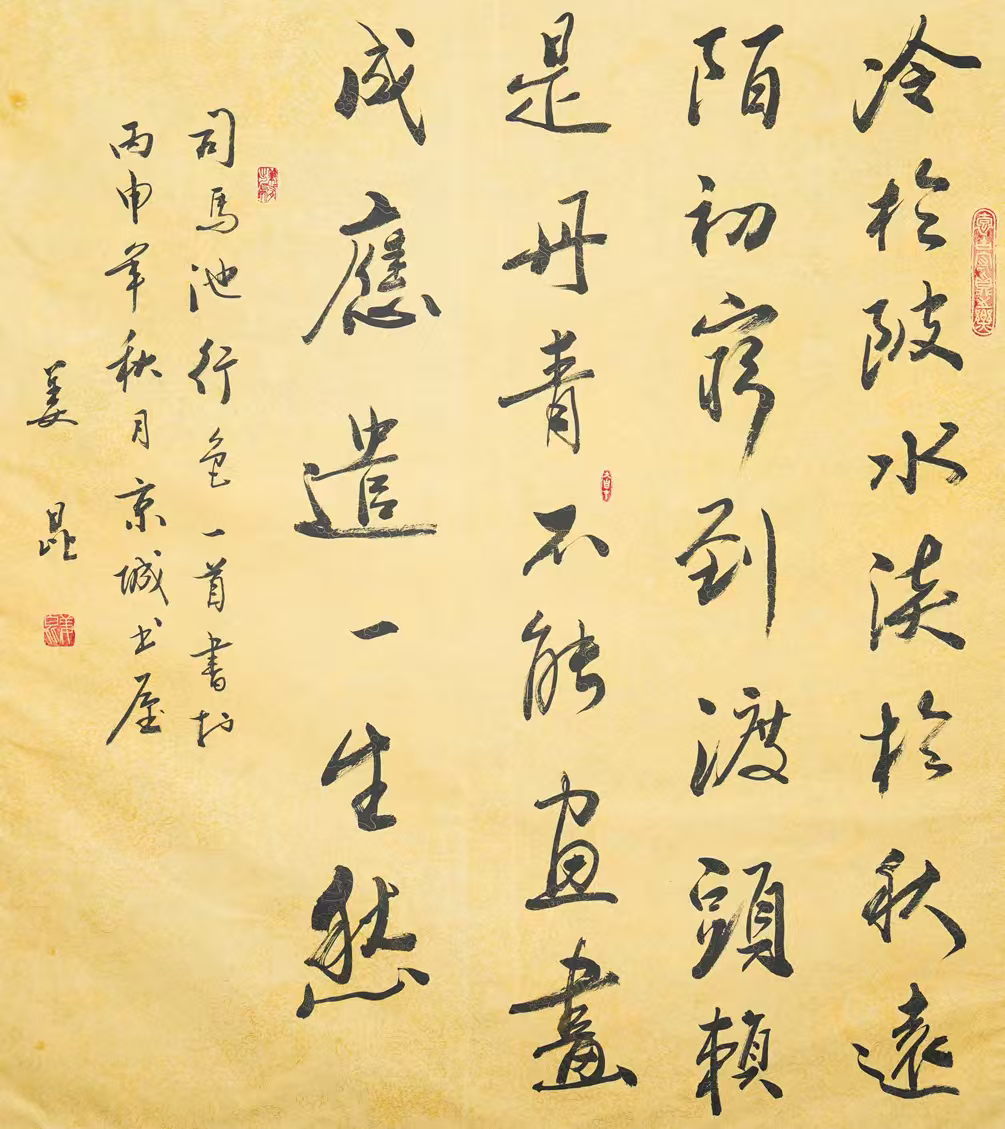 冷於陂水淡於秋遠
陌初窮到渡頭賴
是丹青不能画畫
成應遣一生愁
司馬池行色一首書於
丙申年秋月京城书屋
姜昆